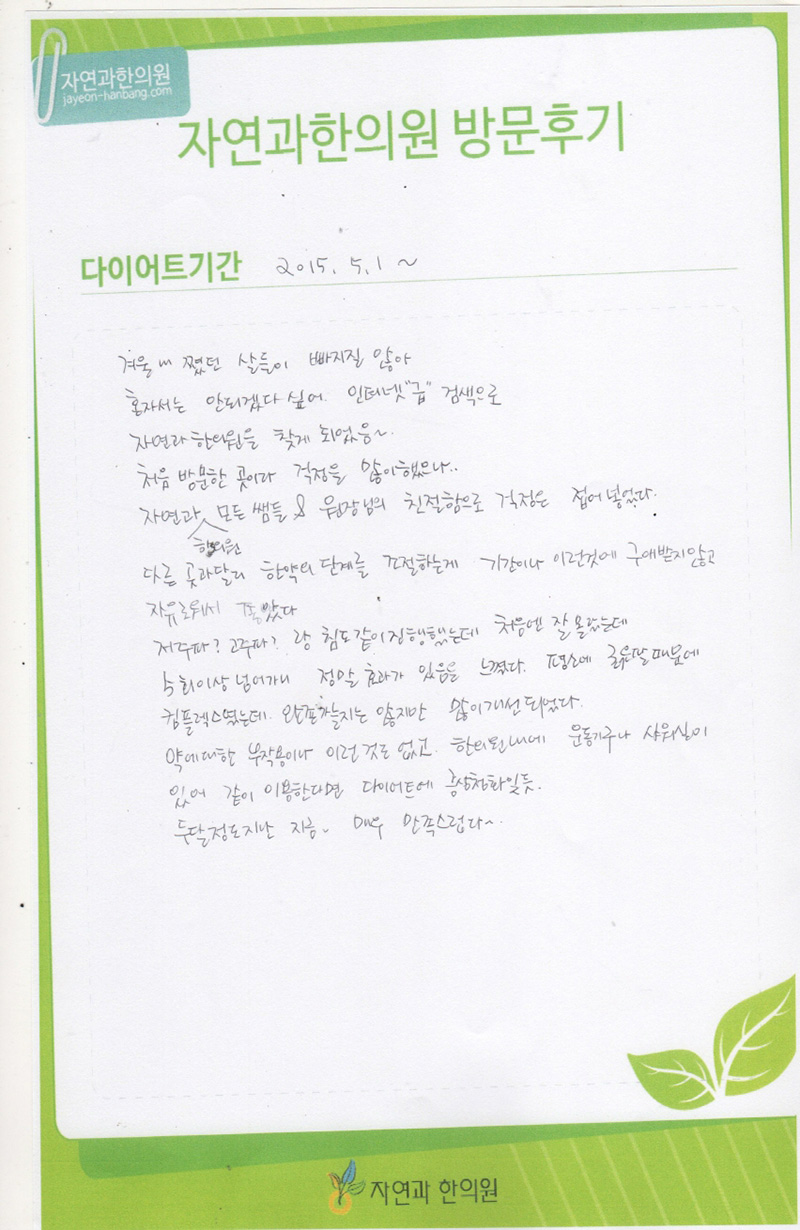 자연과한의원
jayeon-hanbang.com
자연과한의원 방문후기
다이어트기간 2015. 5. 1 ~
겨울내 쪘던 살들이 빠지질 않아
혼자서는 안되겠다 싶어. 인터넷"급" 검색으로
자연과한의원을 찾게 되었음~.
처음 방문한 곳이라 걱정을 많이했으나..
자연과 한의원 모든 쌤들 & 원장님의 친절함으로 걱정은 접어넣었다.
다른 곳과달리 한약의 단계를 조절하는게 기간이나 이런것에 구애받지않고
자유로워서 좋았다
저주파? 고주파? 랑 침도같이진행했는데 처음엔 잘 몰랐는데
5회이상 넘어가니 정말 효과가 있음을 느꼈다. 평소에 굵은팔때문에
컴플렉스였는데. 완존가늘지는 않지만 많이개선되었다.
약에대한 부작용이나 이런것도 없고. 한의원내에 운동기구나 샤워실이
있어 같이 이용한다면 다이어트에 금상첨화일듯.
두달정도지난 지금~ 매우 만족스럽다~.
자연과 한의원